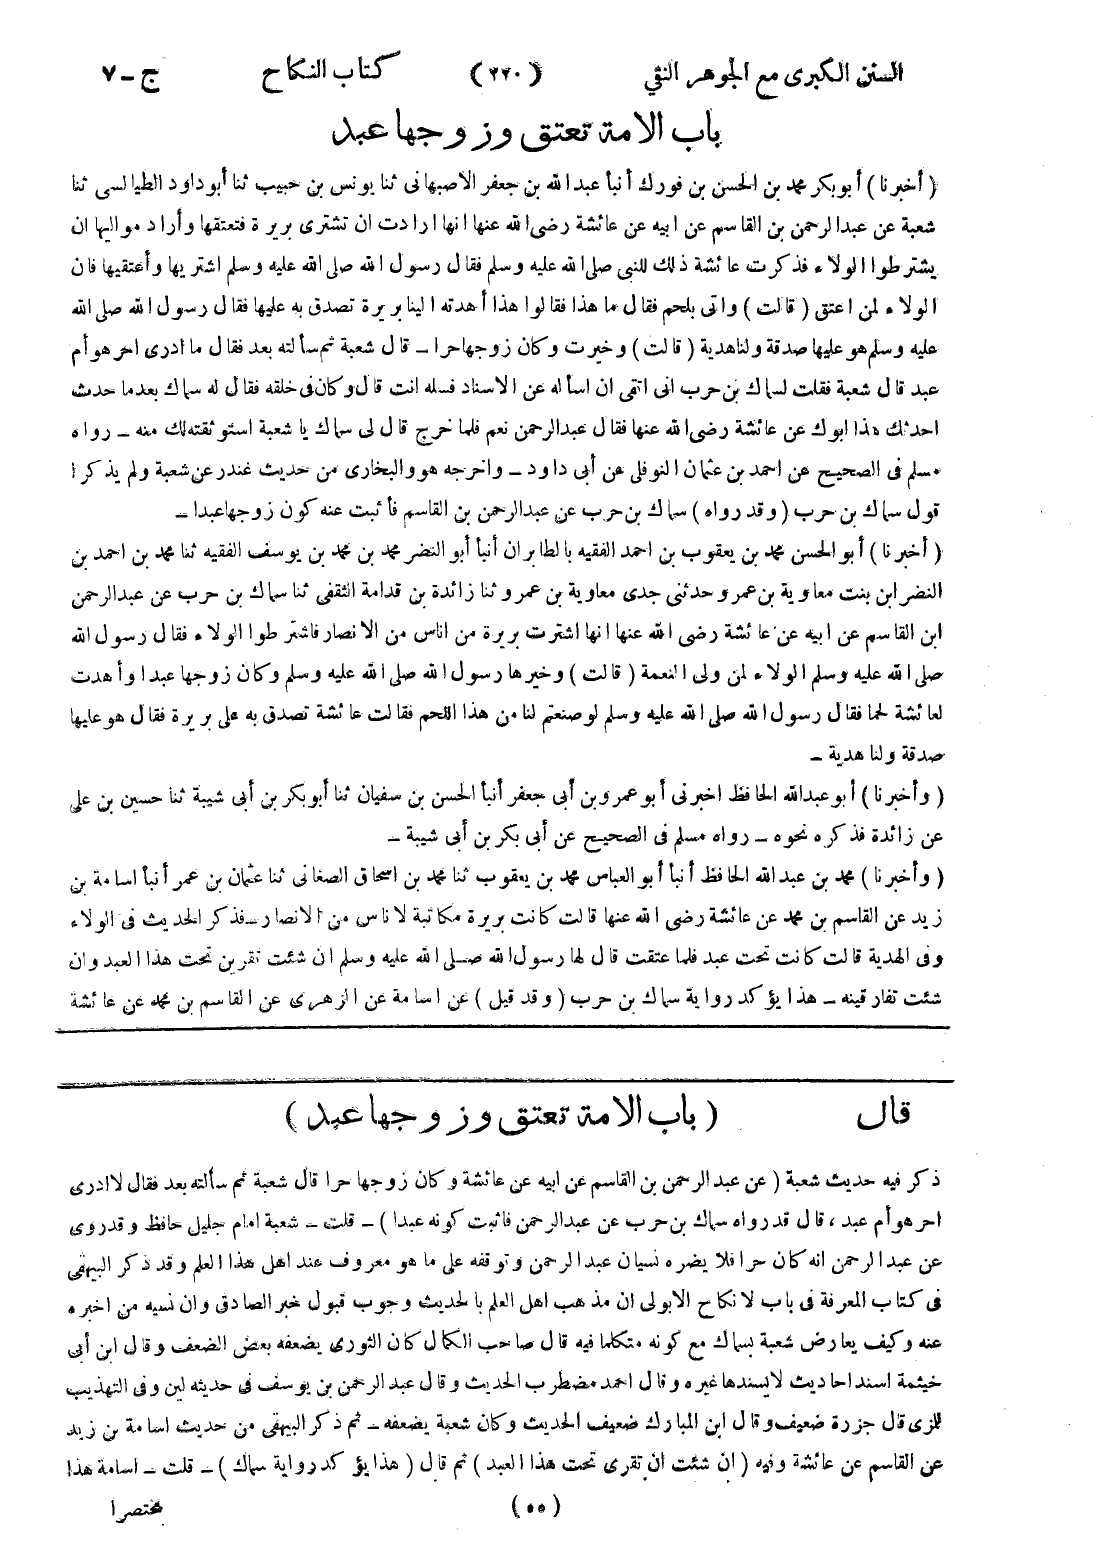 السنن الكبرى مع الجوهر النقى (٢٢٠) كتاب النكاح ج – ٧
باب الامة تعتق وزوجها عبد
(أخبرنا) أبو بكر محمد بن الحسن بن فورك أنبأ عبد الله بن جعفر الاصبهانى ثنا يونس بن حبيب ثنا أبو داود الطيالسى ثنا
شعبة عن عبدالرحمن بن القاسم عن ابيه عن عائشة رضى الله عنها انها ارادت ان تشترى بريرة فتعتقها وأراد مواليها ان
يشترطوا الولاء فذكرت عائشة ذلك للنبى صلى الله عليه وسلم فقال رسول الله صلى الله عليه وسلم اشتريها وأعتقيها فان
الولاء لمن اعتق (قالت) واتى بلحم فقال ما هذا فقالوا هذا أهدته الينا بريرة تصدق به عليها فقال رسول الله صلى الله
عليه وسلم هو عليها صدقة ولنا هدية (قالت) وخيرت وكان زوجها حرا – قال شعبة ثم سألته بعد فقال ما ادرى احر هو أم
عبد قال شعبة فقلت لسماك بن حرب انى اتقى ان اسأله عن الاسناد فسله انت قال وكان فى خلقه فقال له سماك بعد ما حدث
احدثك هذا ابوك عن عائشة رضى الله عنها فقال عبدالرحمن نعم فلما خرج قال لى سماك يا شعبة استوثقته لك منه – رواه
مسلم فى الصحيح عن احمد بن عثمان النوفلى عن أبى داود – واخرجه هو والبخارى من حديث غندر عن شعبة ولم يذكرا
قول سماك بن حرب (وقد رواه) سماك بن حرب عن عبدالرحمن بن القاسم فأثبت عنه كون زوجها عبدا –
(أخبرنا) أبو الحسن محمد بن يعقوب بن احمد الفقيه بالطابران أنبأ أبو النضر محمد بن محمد بن يوسف الفقيه ثنا محمد بن احمد بن
النضر ابن بنت معاوية بن عمرو حدثنى جدى معاوية بن عمرو ثنا زائدة بن قدامة الثقفى ثنا سماك بن حرب عن عبدالرحمن
ابن القاسم عن ابيه عن عائشة رضى الله عنها انها اشترت بريرة من اناس من الانصار فاشترطوا الولاء فقال رسول الله
صلى الله عليه وسلم الولاء لمن ولى النعمة (قالت) وخيرها رسول الله صلى الله عليه وسلم وكان زوجها عبدا وأهدت
لعائشة لحما فقال رسول الله صلى الله عليه وسلم لو صنعتم لنا من هذا اللحم فقالت عائشة تصدق به على بريرة فقال هو عليها
صدقة ولنا هدية –
(وأخبرنا) أبو عبدالله الحافظ اخبرنى أبو عمرو بن أبى جعفر أنبأ الحسن بن سفيان ثنا أبو بكر بن أبى شيبة ثنا حسين بن على
عن زائدة فذكره نحوه – رواه مسلم فى الصحيح عن أبى بكر بن أبى شيبة –
(وأخبرنا) محمد بن عبد الله الحافظ أنبأ أبو العباس محمد بن يعقوب ثنا محمد بن اسحاق الصغانى ثنا عثمان بن عمر أنبأ اسامة بن
زيد عن القاسم بن محمد عن عائشة رضى الله عنها قالت كانت بريرة مكاتبة لاناس من الانصار – فذكر الحديث فى الولاء
وفى الهدية قالت كانت تحت عبد فلما عتقت قال لها رسول الله صلى الله عليه وسلم ان شئت تقرين تحت هذا العبد وان
شئت تفارقينه – هذا يؤكد رواية سماك بن حرب (وقد قيل) عن اسامة عن الزهرى عن القاسم بن محمد عن عائشة
قال (باب الامة تعتق وزوجها عبد)
ذكر فيه حديث شعبة (عن عبد الرحمن بن القاسم عن ابيه عن عائشة وكان زوجها حرا قال شعبة ثم سألته بعد فقال لا ادرى
احر هو أم عبد ، قال قد رواه سماك بن حرب عن عبدالرحمن فاثبت كونه عبدا) – قلت – شعبة امام جليل حافظ وقد روى
عن عبد الرحمن انه كان حرا فلا يضره نسيان عبدالرحمن وتوقفه على ما هو معروف عند اهل هذا العلم وقد ذكر البيهقى
فى كتاب المعرفة فى باب لا نكاح الا بولى ان مذهب اهل العلم بالحديث وجوب قبول خبر الصادق وان نسيه من اخبره
عنه وكيف يعارض شعبة بسماك مع كونه متكلما فيه قال صاحب الكمال كان الثورى يضعفه بعض الضعف وقال ابن أبى
خيثمة اسند احاديث لا يسندها غيره وقال احمد مضطرب الحديث وقال عبد الرحمن بن يوسف فى حديثه لين وفى التهذيب
للزى قال جزرة ضعيف وقال ابن المبارك ضعيف الحديث وكان شعبة يضعفه – ثم ذكر البيهقى من حديث اسامة بن زيد
عن القاسم عن عائشة وفيه (ان شئت ان تقرى تحت هذا العبد) ثم قال (هذا يؤكد رواية سماك) – قلت – اسامة هذا
(٥٥) مختصرا